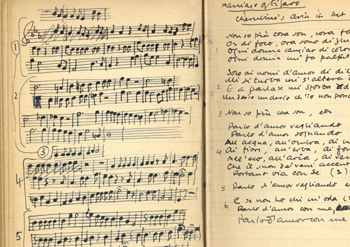 1
2
3
4
5
Mariage of Figaro
Cherubino's aria in Act
Non so più cosa son, cosa fa
1 Or di foco, ora sono di
Ogni donna cangiar di color
Ogni donna mi fa palpit
Solo ai nomi d'amor di di
Mi si turba mi s'altera i
2 E a parlare mi sforza d
Un desio un desio ch'io non pos
3 Non so più cosa son, etc
Parlo d'amor vegliando
Parlo d'amor sognando
All'acqua, all'ombra, ai m
4 Ai fiori, all'erba, ai fon
All'eco, all'aria, ai ven
Che il suon dei vani accen
Portano via con se (2)
5 Parlo d'amor vegliando e
E se non ho chi m'oda (2)
6 Parlo d'amor con me,
Parlo d'amor con me